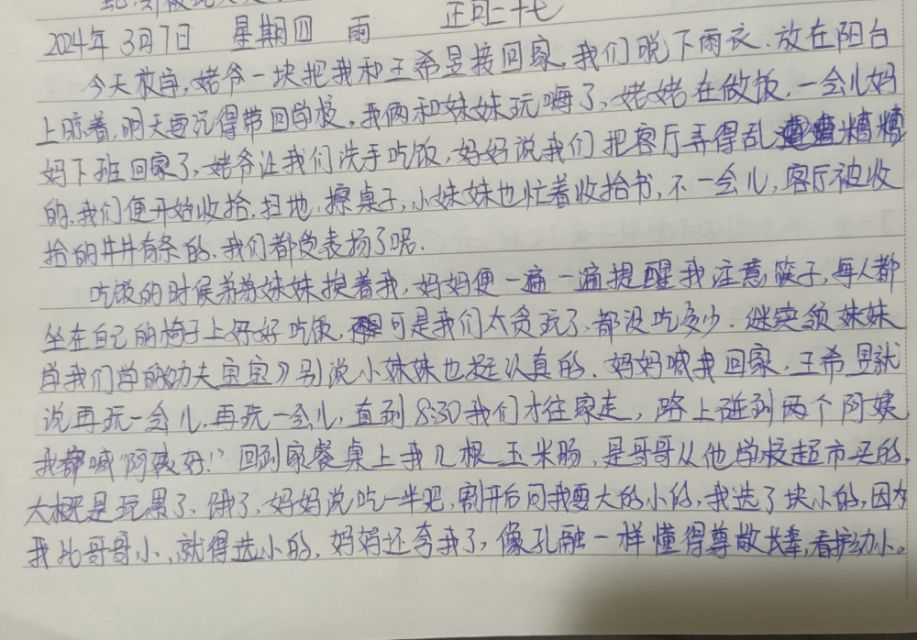 2024年 3月7日 星期四 雨 正月二十七
今天放学,姥爷一块把我和王希昱接回家,我们脱下雨衣.放在阳台
上晾着,明天要记得带回学校,我俩和妹妹玩嗨了,姥姥在做饭,一会儿妈
妈下班回家了,姥爷让我们洗手吃饭,妈妈说我们把客厅弄得乱糟糟
的,我们便开始收拾,扫地,擦桌子,小妹妹也忙着收拾书,不一会儿,客厅被收
拾的井井有条的,我们都受表扬了呢.
吃饭的时候弟弟妹妹挨着我,妈妈便一遍一遍提醒我注意筷子,每人都
坐在自己的椅子上好好吃饭,可是我们太贪玩了,都没吃多少.继续领妹妹
学我们学的功夫宝宝》别说小妹妹也挺认真的.妈妈喊我回家,王希昱就
说再玩一会儿,再玩一会儿,直到8:30我们才往家走,路上碰到两个阿姨
我都喊"阿姨好!"回到家餐桌上我几根玉米肠,是哥哥从他学校超市买的,
大概是玩累了、饿了,妈妈说吃一半吧,割开后问我要大的小的,我选了块小的,因为
我比哥哥小,就得选小的.妈妈还夸我了,像孔融一样懂得尊敬长辈,看护幼小。